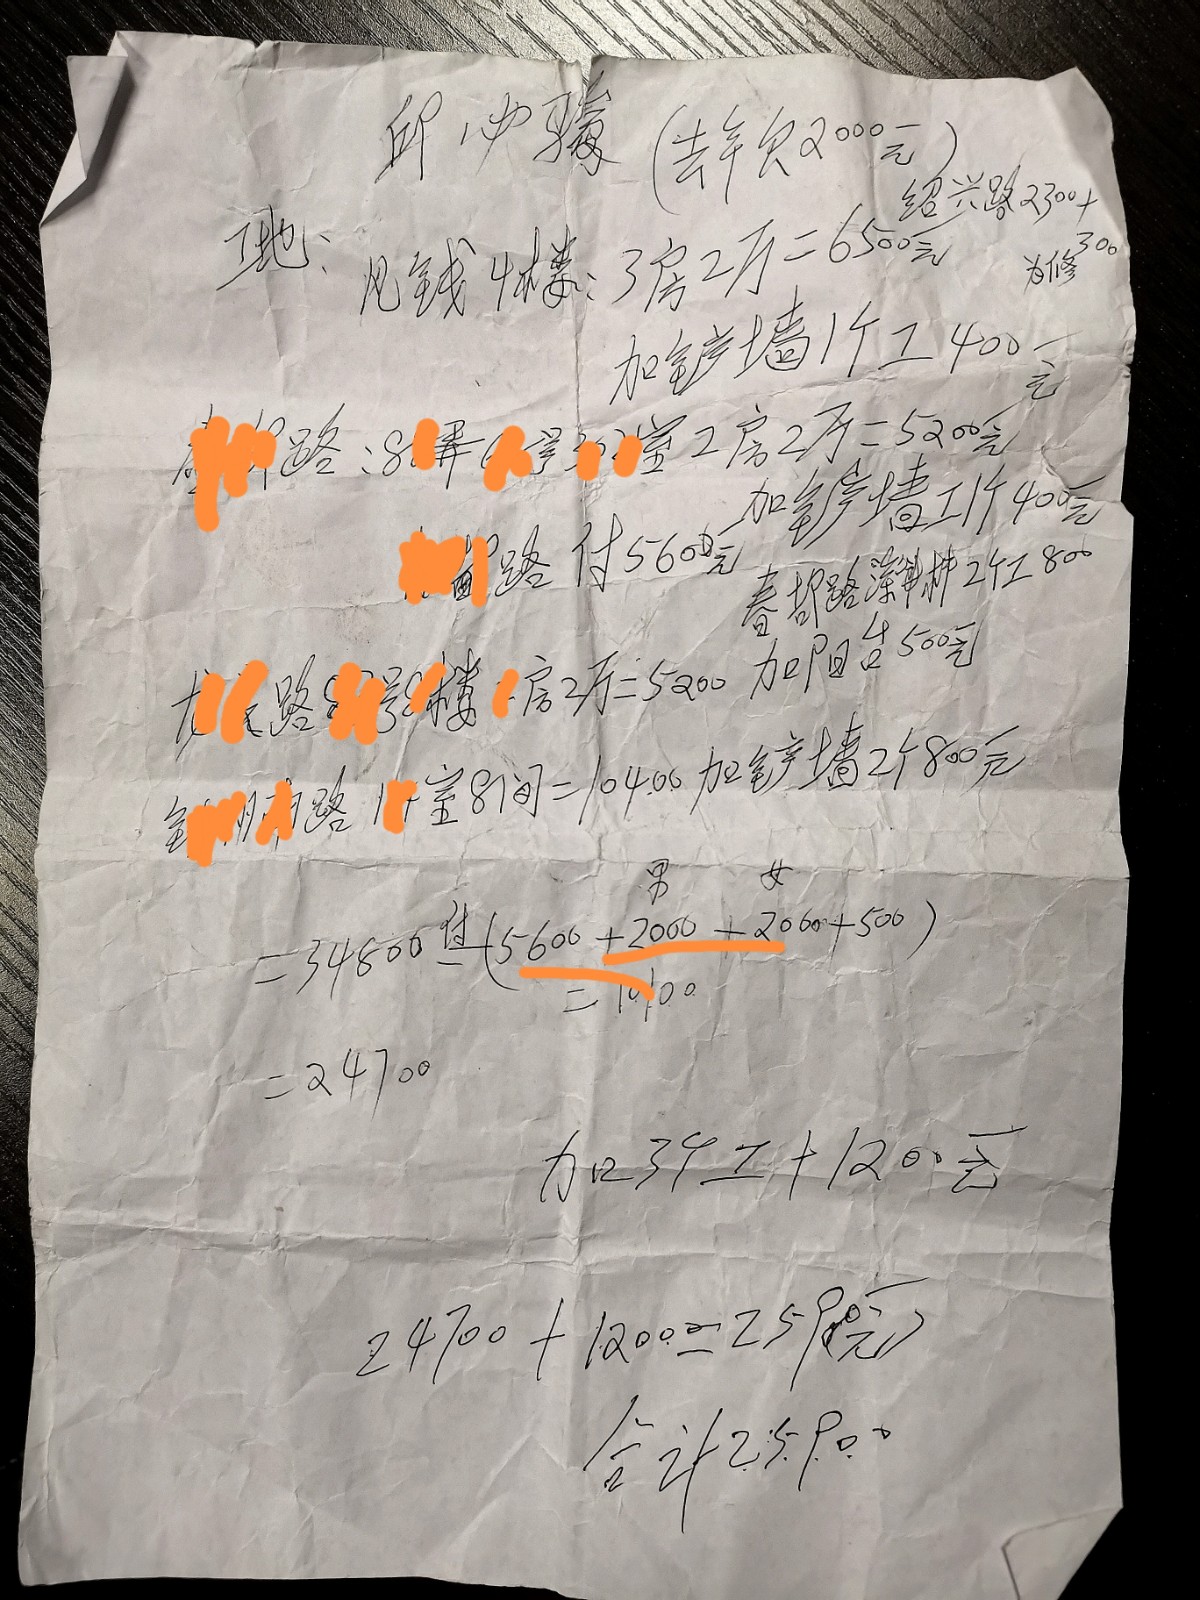 邱 (去年欠2000元)
绍兴路2300+
300
为修
工地: 4楼: 3房2厅=6500元
加铲墙1个工400元
路:8 弄 号 室2房2厅=5200元
加铲墙工1个400元
路 付5600元
春 路 2个工800
路 号 楼 房2厅=5200 加阳台500元
路 室8间=10400 加铲墙2个800元
男 女
=34800付(5600+2000+2000+500)
=24700
加3个工+1200元
24700+1200=25900元
合计25900